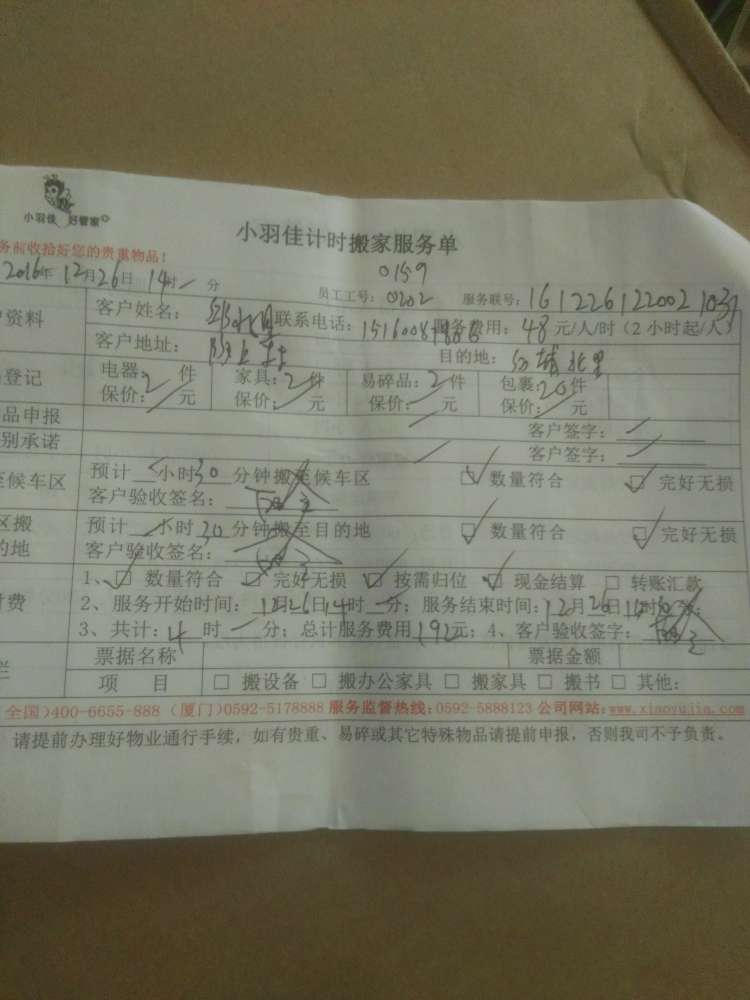 小羽佳 好管家
小羽佳计时搬家服务单
务前收拾好您的贵重物品!
0159
2016年12月26日 14时 分
员工工号: 0202 服务联号: 161226122002
资料 客户姓名: 联系电话: 服务费用: 48元/人/时 (2小时起/人)
客户地址: 目的地:
登记 电器: 2件 家具: 2件 易碎品: 2件 包裹: 20件
保价: 元 保价: 元 保价: 元 保价: 元
品申报 客户签字:
别承诺 客户签字:
至候车区 预计 小时30分钟搬至候车区 ☑ 数量符合 ☑ 完好无损
客户验收签名:
区搬 预计 小时30分钟搬至目的地 ☑ 数量符合 ☑ 完好无损
的地 客户验收签名:
1、☑ 数量符合 ☑ 完好无损 ☑ 按需归位 ☑ 现金结算 □ 转账汇款
付费 2、服务开始时间: 12月26日14时 分; 服务结束时间: 12月26日
3、共计: 4时 分; 总计服务费用192元; 4、客户验收签字:
票据名称 票据金额
栏 项 目 □ 搬设备 □ 搬办公家具 □ 搬家具 □ 搬书 □ 其他:
全国)400-6655-888 (厦门)0592-5178888 服务监督热线:0592-5888123 公司网站:www.xiaoyujia.com
请提前办理好物业通行手续,如有贵重、易碎或其它特殊物品请提前申报,否则我司不予负责。